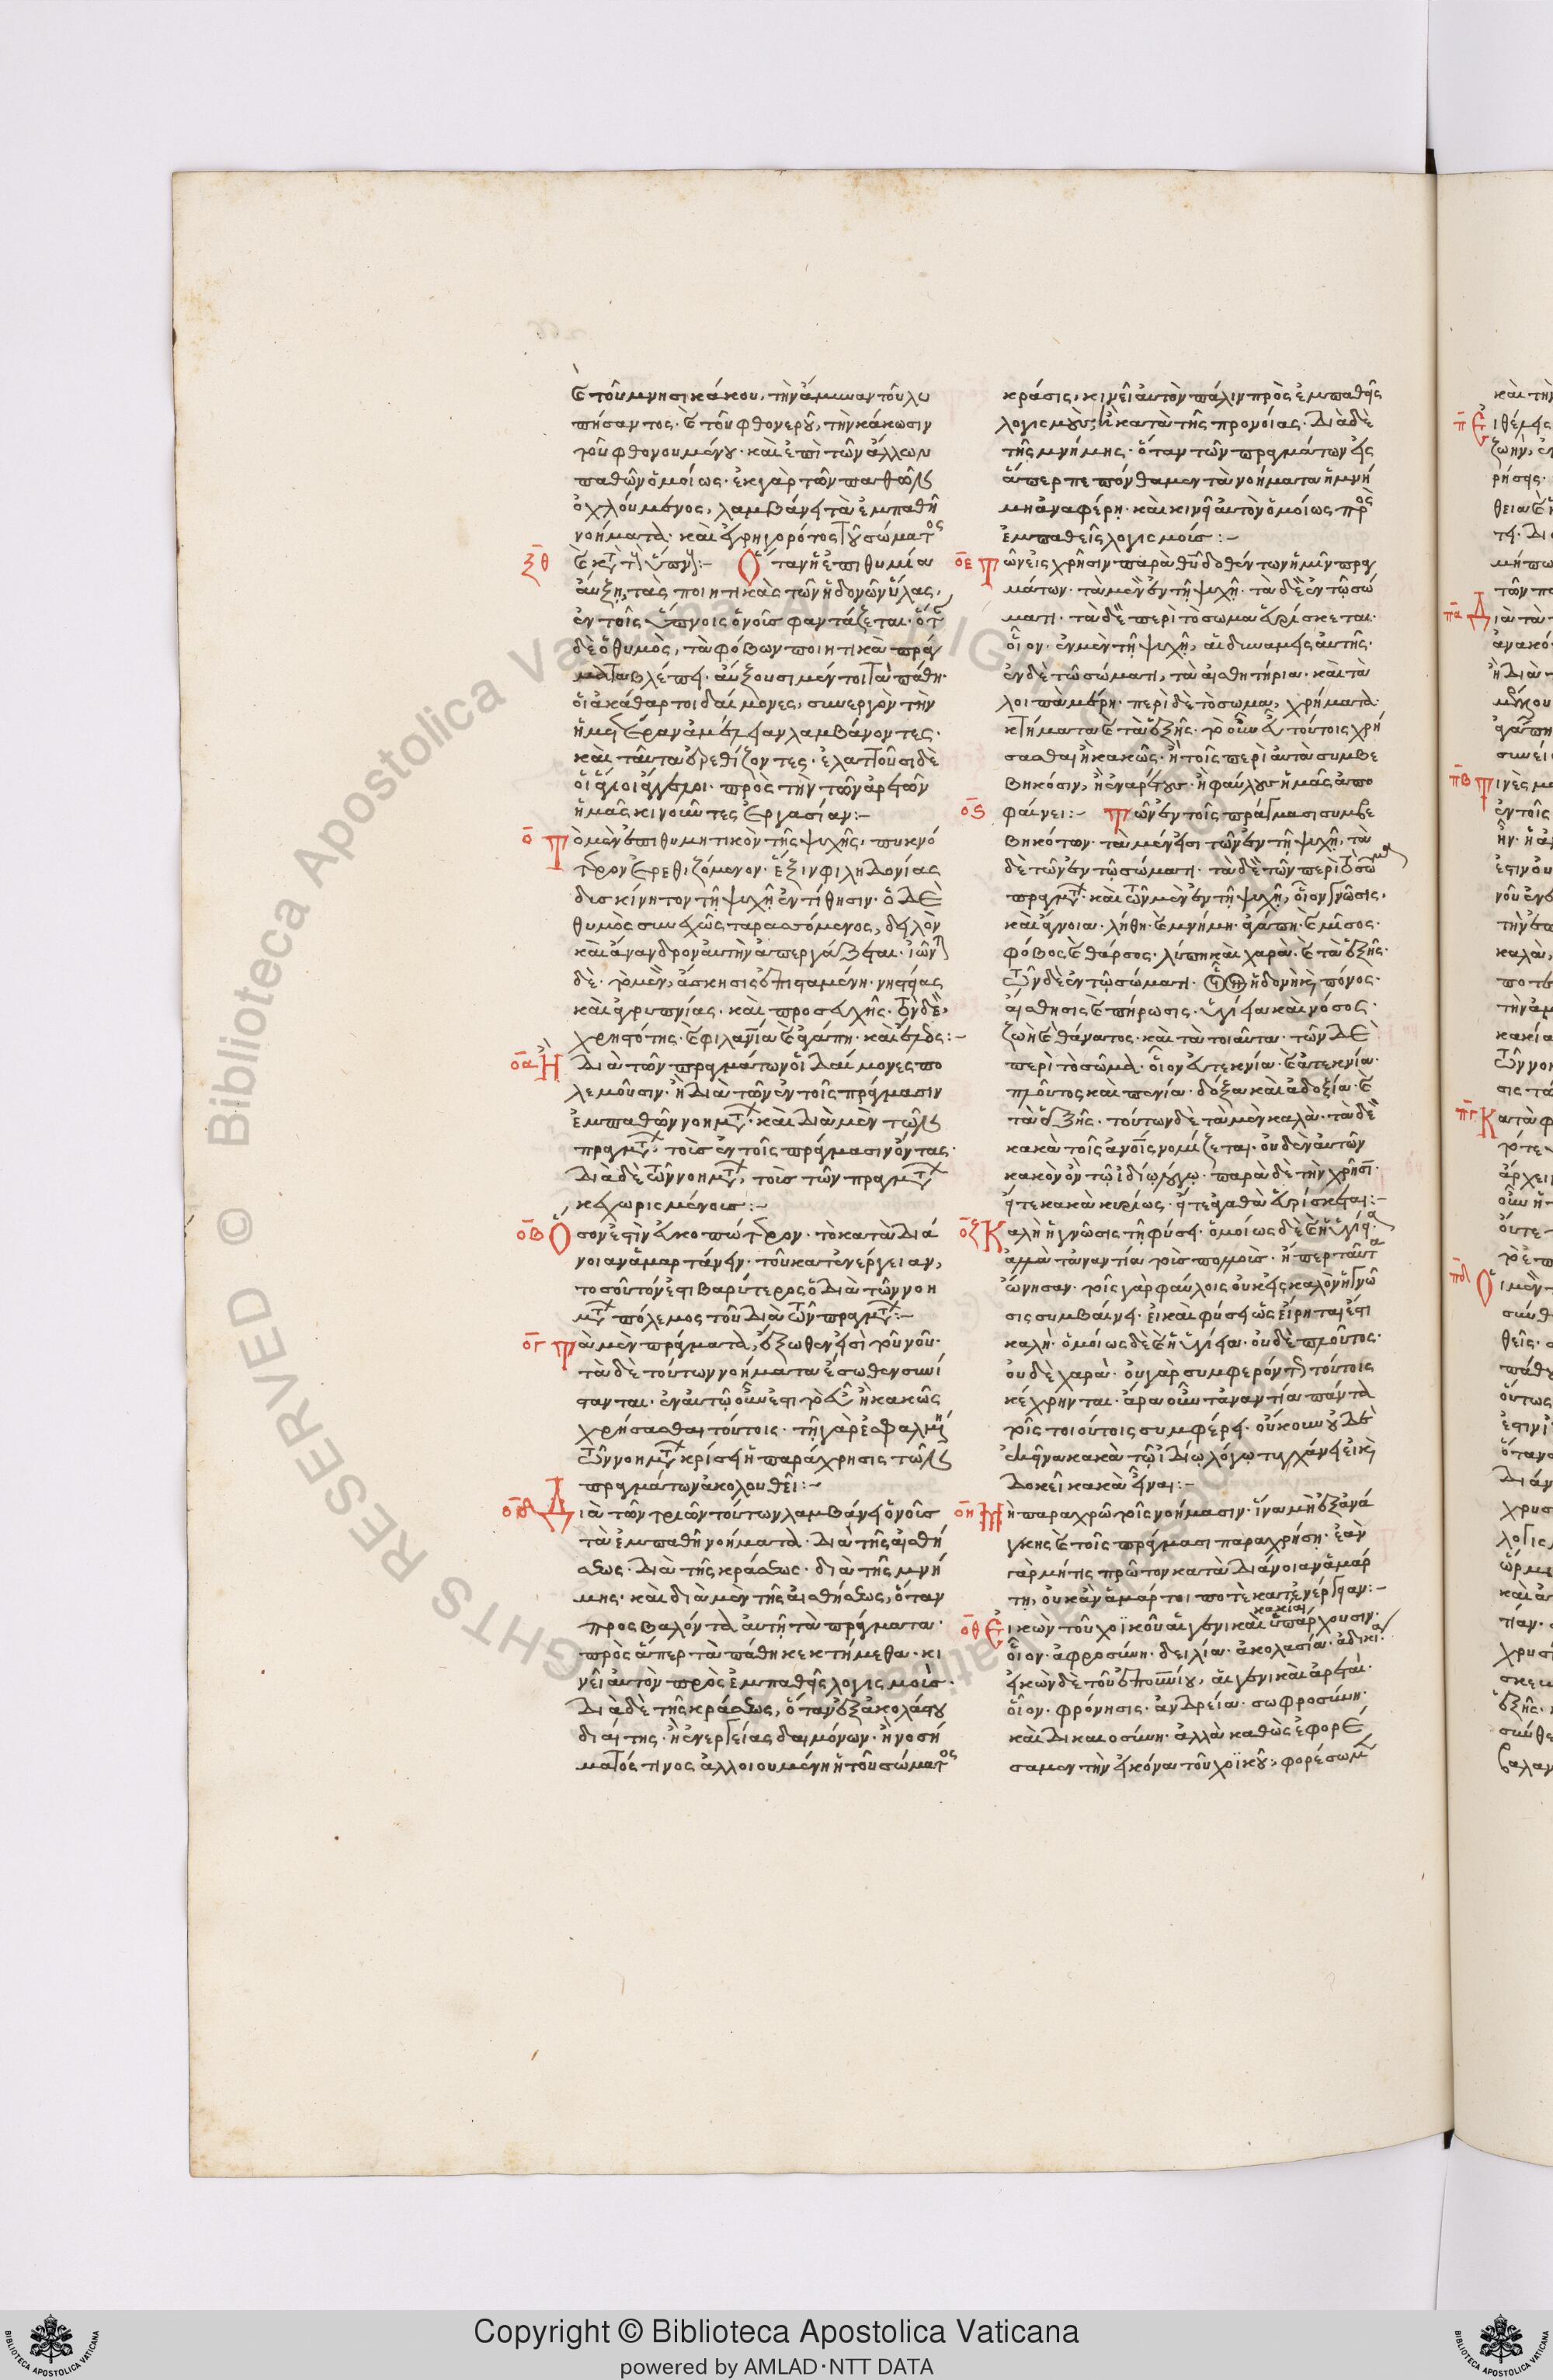 καὶ τοῦ μνησικάκου, τὴν ἄμυναν τοῦ λυ
πήσαντος· καὶ τοῦ φθονεροῦ, τὴν κάκωσιν
τοῦ φθονουμένου· καὶ ἐπὶ τῶν ἄλλων
παθῶν ὁμοίως· ἐκ γὰρ τῶν παθῶν ὁ νοῦς
ὀχλούμενος, λαμβάνει τὰ ἐμπαθῆ
νοήματα· καὶ ἐγρηγορότος τοῦ σώματος
ξθ καὶ κατὰ τοὺς ὕπνους:– Ὅταν ἡ ἐπιθυμία
αὔξῃ, τὰς ποιητικὰς τῶν ἡδονῶν ὕλας,
ἐν τοῖς ὕπνοις ὁ νοῦς φαντάζεται· ὅτε
δὲ ὁ θυμὸς, τὰ φόβων ποιητικὰ πράγ
ματα βλέπει· αὔξουσι μέντοι τὰ πάθη·
οἱ ἀκάθαρτοι δαίμονες, συνεργὸν τὴν
ἡμετέραν ἀμέλειαν λαμβάνοντες·
καὶ ταῦτα ἐρεθίζοντες· ἐλαττοῦσι δὲ
οἱ ἅγιοι ἄγγελοι· πρὸς τὴν τῶν ἀρετῶν
ἡμᾶς κινοῦντες ἐργασίαν:–
ο Τὸ μὲν ἐπιθυμητικὸν τῆς ψυχῆς, πυκνό
τερον ἐρεθιζόμενον· ἕξιν φιληδονίας
δυσκίνητον τῇ ψυχῇ ἐντίθησιν· ὁ δὲ
θυμὸς συνεχῶς ταρασσόμενος, δειλὸν
καὶ ἄνανδρον αὐτὴν ἀπεργάζεται· ἰῶνται
δὲ· τὸ μὲν, ἄσκησις ἐπιταμένη· νηστείας
καὶ ἀγρυπνίας· καὶ προσευχῆς· τὸν δὲ,
χρηστότης· καὶ φιλανία καὶ ἀγάπη· καὶ ἔλεος:–
οα Ἢ διὰ τῶν πραγμάτων οἱ δαίμονες πο
λεμοῦσιν· ἢ διὰ τῶν ἐν τοῖς πράγμασιν
ἐμπαθῶν νοημάτων· καὶ διὰ μὲν τῶν
πραγμάτων, τοὺς ἐν τοῖς πράγμασιν ὄντας·
διὰ δὲ τῶν νοημάτων, τοὺς τῶν πραγμάτων
κεχωρισμένους:–
οβ Ὅσον ἐστὶν εὐκοπώτερον· τὸ κατὰ διά
νοιαν ἁμαρτάνειν· τοῦ κατ' ἐνέργειαν,
τοσοῦτόν ἐστι βαρύτερος ὁ διὰ τῶν νοη
μάτων πόλεμος τοῦ διὰ τῶν πραγμάτων:–
ογ Τὰ μὲν πράγματα, ἔξωθεν εἰσὶ τοῦ νοῦ·
τὰ δὲ τούτων νοήματα ἔσωθεν συνί
στανται· ἐν αὐτῷ οὖν ἐστι τὸ εὖ ἢ κακῶς
χρήσασθαι τούτοις· τῇ γὰρ ἐσφαλμένῃ
τῶν νοημάτων κρίσει ἡ παράχρησις τῶν
πραγμάτων ἀκολουθεῖ:–
οδ Διὰ τῶν τριῶν τούτων λαμβάνει ὁ νοῦς
τὰ ἐμπαθῆ νοήματα· διὰ τῆς αἰσθή
σεως· διὰ τῆς κράσεως· διὰ τῆς μνή
μης· καὶ διὰ μὲν τῆς αἰσθήσεως, ὅταν
προσβαλόντα αὐτῇ τὰ πράγματα·
πρὸς ἅπερ τὰ πάθη κεκτήμεθα· κι
νεῖ αὐτὸν πρὸς ἐμπαθεῖς λογισμούς·
διὰ δὲ τῆς κράσεως, ὅταν ἐξ ἀκολάστου
διαίτης· ἢ ἐνεργείας δαιμόνων· ἢ νοσή
ματός τινος ἀλλοιουμένη ἡ τοῦ σώματος
κράσις, κινεῖ αὐτὸν πάλιν πρὸς ἐμπαθεῖς
λογισμούς, ἢ κατὰ τῆς προνοίας· διὰ δὲ
τῆς μνήμης· ὅταν τῶν πραγμάτων εἰς
ἅπερ πεπόνθαμεν τὰ νοήματα ἡ μνή
μη ἀναφέρῃ· καὶ κινεῖ αὐτὸν ὁμοίως πρὸς
ἐμπαθεῖς λογισμούς:–
οε Τῶν εἰς χρῆσιν παρὰ θυ δοθέντων ἡμῖν πραγ
μάτων· τὰ μὲν ἐν τῇ ψυχῇ· τὰ δὲ ἐν τῷ σώ
ματι· τὰ δὲ περὶ τὸ σῶμα εὑρίσκεται·
οἷον· ἐν μὲν τῇ ψυχῇ, αἱ δυνάμεις αὐτῆς·
ἐν δὲ τῷ σώματι, τὰ αἰσθητήρια· καὶ τὰ
λοιπὰ μέρη· περὶ δὲ τὸ σῶμα, χρήματα·
κτήματα καὶ τὰ ἑξῆς· τὸ οὖν εὖ τούτοις χρή
σασθαι ἢ κακῶς· ἢ τοῖς περὶ αὐτὰ συμβε
βηκόσιν, ἢ ἐναρέτους· ἢ φαύλους ἡμᾶς ἀπο
οϛ φαίνει:– Τῶν ἐν τοῖς πράγμασι συμβε
βηκότων· τὰ μέν εἰσι τῶν ἐν τῇ ψυχῇ, τὰ
δὲ τῶν ἐν τῷ σώματι· τὰ δὲ τῶν περὶ τὸ σῶμα
πραγμάτων· καὶ τῶν μὲν ἐν τῇ ψυχῇ, οἷον γνῶσις·
καὶ ἄγνοια· λήθη· καὶ μνήμη· ἀγάπη· καὶ μῖσος·
φόβος καὶ θάρσος· λύπη καὶ χαρά· καὶ τὰ ἑξῆς·
τῶν δὲ ἐν τῷ σώματι· ἡδονὴ καὶ πόνος·
αἴσθησις καὶ πήρωσις· ὑγίεια καὶ νόσος·
ζωὴ καὶ θάνατος· καὶ τὰ τοιαῦτα· τῶν δὲ
περὶ τὸ σῶμα· οἷον εὐτεκνία· καὶ ἀτεκνία·
πλοῦτος καὶ πενία· δόξα καὶ ἀδοξία· καὶ
τὰ ἑξῆς· τούτων δὲ τὰ μὲν καλὰ· τὰ δὲ
κακὰ τοῖς ἀνοις νομίζεται· οὐδὲν αὐτῶν
κακὸν ὂν τῷ ἰδίῳ λόγῳ· παρὰ δὲ τὴν χρῆσιν·
εἴτε κακὰ κυρίως· εἴτε ἀγαθὰ εὑρίσκεται:–
οζ Καλὴ ἡ γνῶσις τῇ φύσει· ὁμοίως δὲ καὶ ἡ ὑγίεια·
ἀλλὰ τἀναντία τοὺς πολλοὺς· ἤπερ ταῦτα
ὤνησαν· τοῖς γὰρ φαύλοις οὐκ εἰς καλὸν ἡ γνῶ
σις συμβαίνει· εἰ καὶ φύσει ὡς εἴρηται ἐστι
καλή· ὁμοίως δὲ καὶ ἡ ὑγίεια· οὐδὲ πλοῦτος·
οὐδὲ χαρά· οὐ γὰρ συμφερόντως τούτοις
κέχρηνται· ἆρα οὖν τἀναντία πάντα
τοῖς τοιούτοις συμφέρει· οὐκοῦν οὐδὲ
ἐκεῖνα κακὰ τῷ ἰδίῳ λόγῳ τυγχάνει εἰ καὶ
δοκεῖ κακὰ εἶναι:–
οη Μὴ παραχρῶ τοῖς νοήμασιν· ἵνα μὴ ἐξ ἀνά
γκης καὶ τοῖς πράγμασι παραχρήσῃ· ἐὰν
γὰρ μή τις πρῶτον κατὰ διάνοιαν ἁμάρ
τῃ, οὐκ ἂν ἁμάρτοι ποτὲ κατ' ἐνέργειαν:–
οθ Εἰκὼν τοῦ χοϊκοῦ αἱ γενικαὶ κακίαι ὑπάρχουσιν·
οἷον· ἀφροσύνη· δειλία· ἀκολασία· ἀδικία·
εἰκὼν δὲ τοῦ ἐπουνίου, αἱ γενικαὶ ἀρεταί·
οἷον· φρόνησις· ἀνδρεία· σωφροσύνη·
καὶ δικαιοσύνη· ἀλλὰ καθὼς ἐφορέ
σαμεν τὴν εἰκόνα τοῦ χοϊκοῦ, φορέσωμεν
Copyright © Biblioteca Apostolica Vaticana
powered by AMLAD·NTT DATA